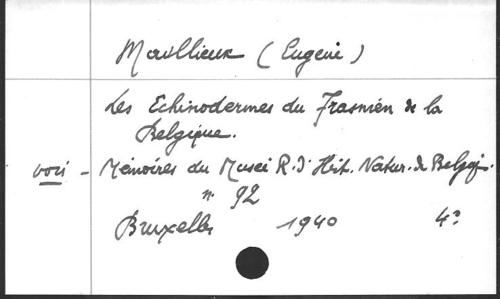 Maillieux (Eugène)
Les Echinodermes du Frasnien de la
Belgique.
voir - Mémoires du Musée R. d'Hist. Natur. de Belgiq.
n° 92
Bruxelles 1940 4°